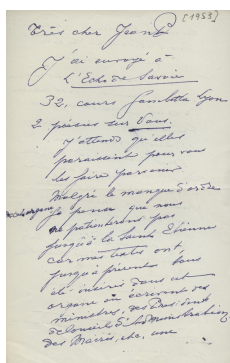 [1953]
Très cher Jean
J'ai envoyé à
L'Echo de Savoie
32, cours Gambetta Lyon
2 pièces sur Vous.
J'attends qu'elles
paraissent pour vous
les faire parvenir
Malgré le manque d'ordre
je pense que nous
ne patienterons pas
jusqu'à la Sainte Etienne
car mes ont,
jusqu'à présent tous
été insérés dans cet
organe où écrivent des
ministres, des Présidents
des Maires, etc, une